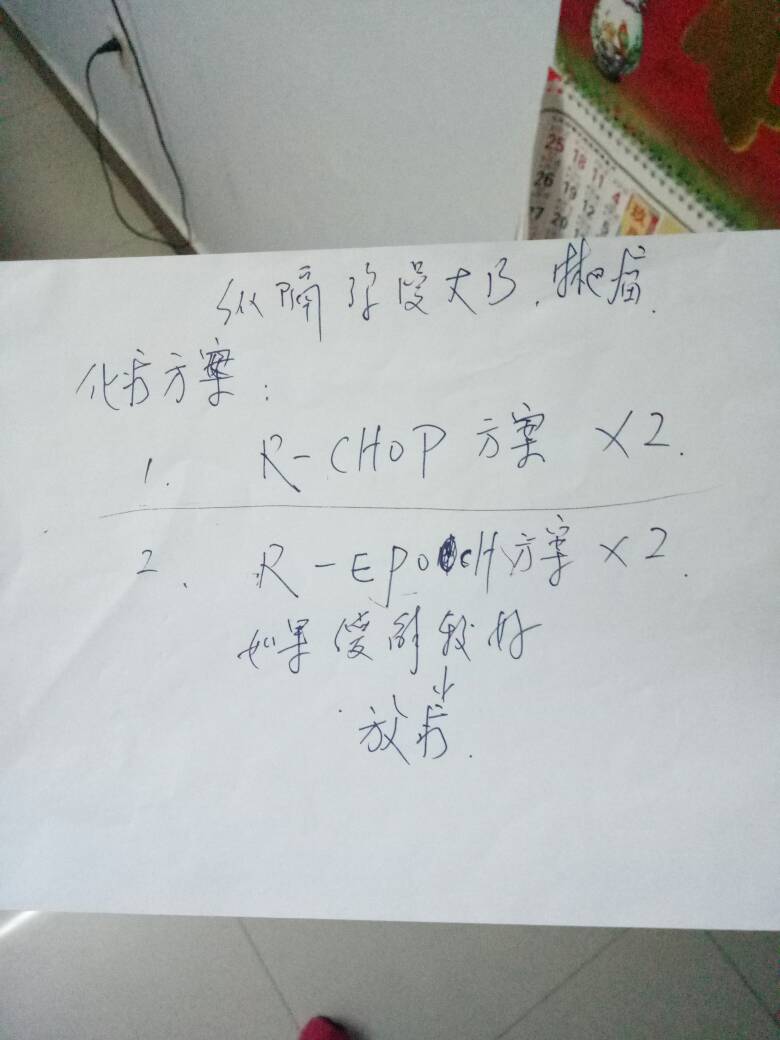 纵隔弥漫大B.淋巴瘤.
化疗方案:
1. R-CHOP 方案 ×2.
2. R-EPOCH方案 ×2.
如果缓解较好
↓
放疗.
25 18 11 4
26 19 12 5
27 20